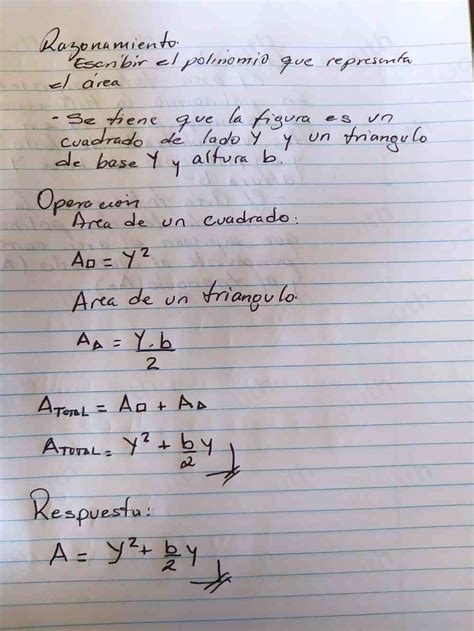 Razonamiento.
Escribir el polinomio que representa
el área
- Se tiene que la figura es un
cuadrado de lado Y y un triangulo
de base Y y altura b.
Operación
Area de un cuadrado:
A□ = Y²
Area de un triangulo.
A△ = Y.b/2
ATOTAL = A□ + A△
ATOTAL = Y² + b/2 Y
Respuesta:
A = Y² + b/2 Y